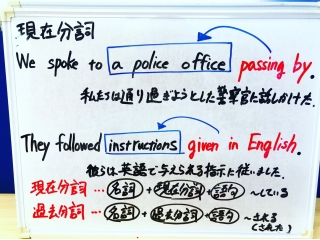 現在分詞
We spoke to a police office passing by.
私たちは通り過ぎようとした警察官に話しかけた.
They followed instructions given in English.
彼らは英語で与えられる指示に従いました.
現在分詞 … 名詞 + 現在分詞 + 語句 〜している
過去分詞 … 名詞 + 過去分詞 + 語句 〜される
(された)